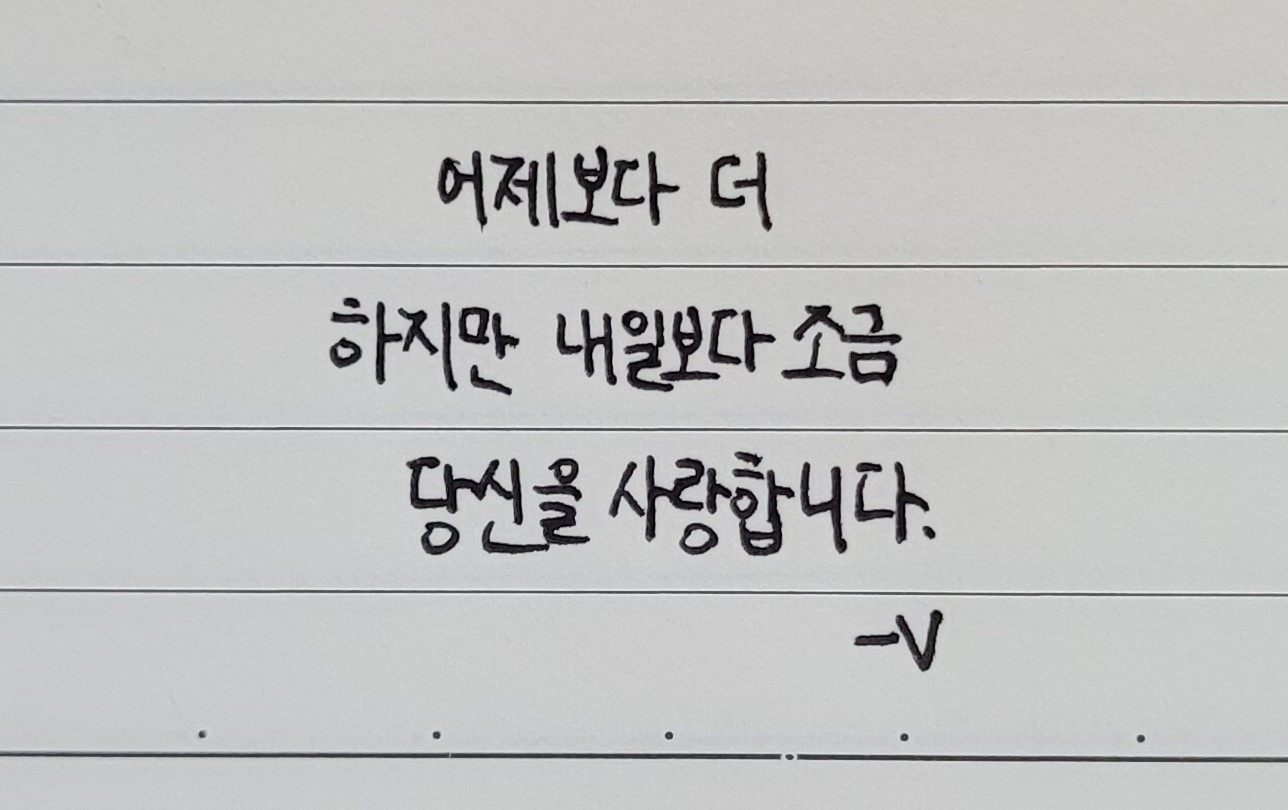 어제보다 더
하지만 내일보다 조금
당신을 사랑합니다.
-V